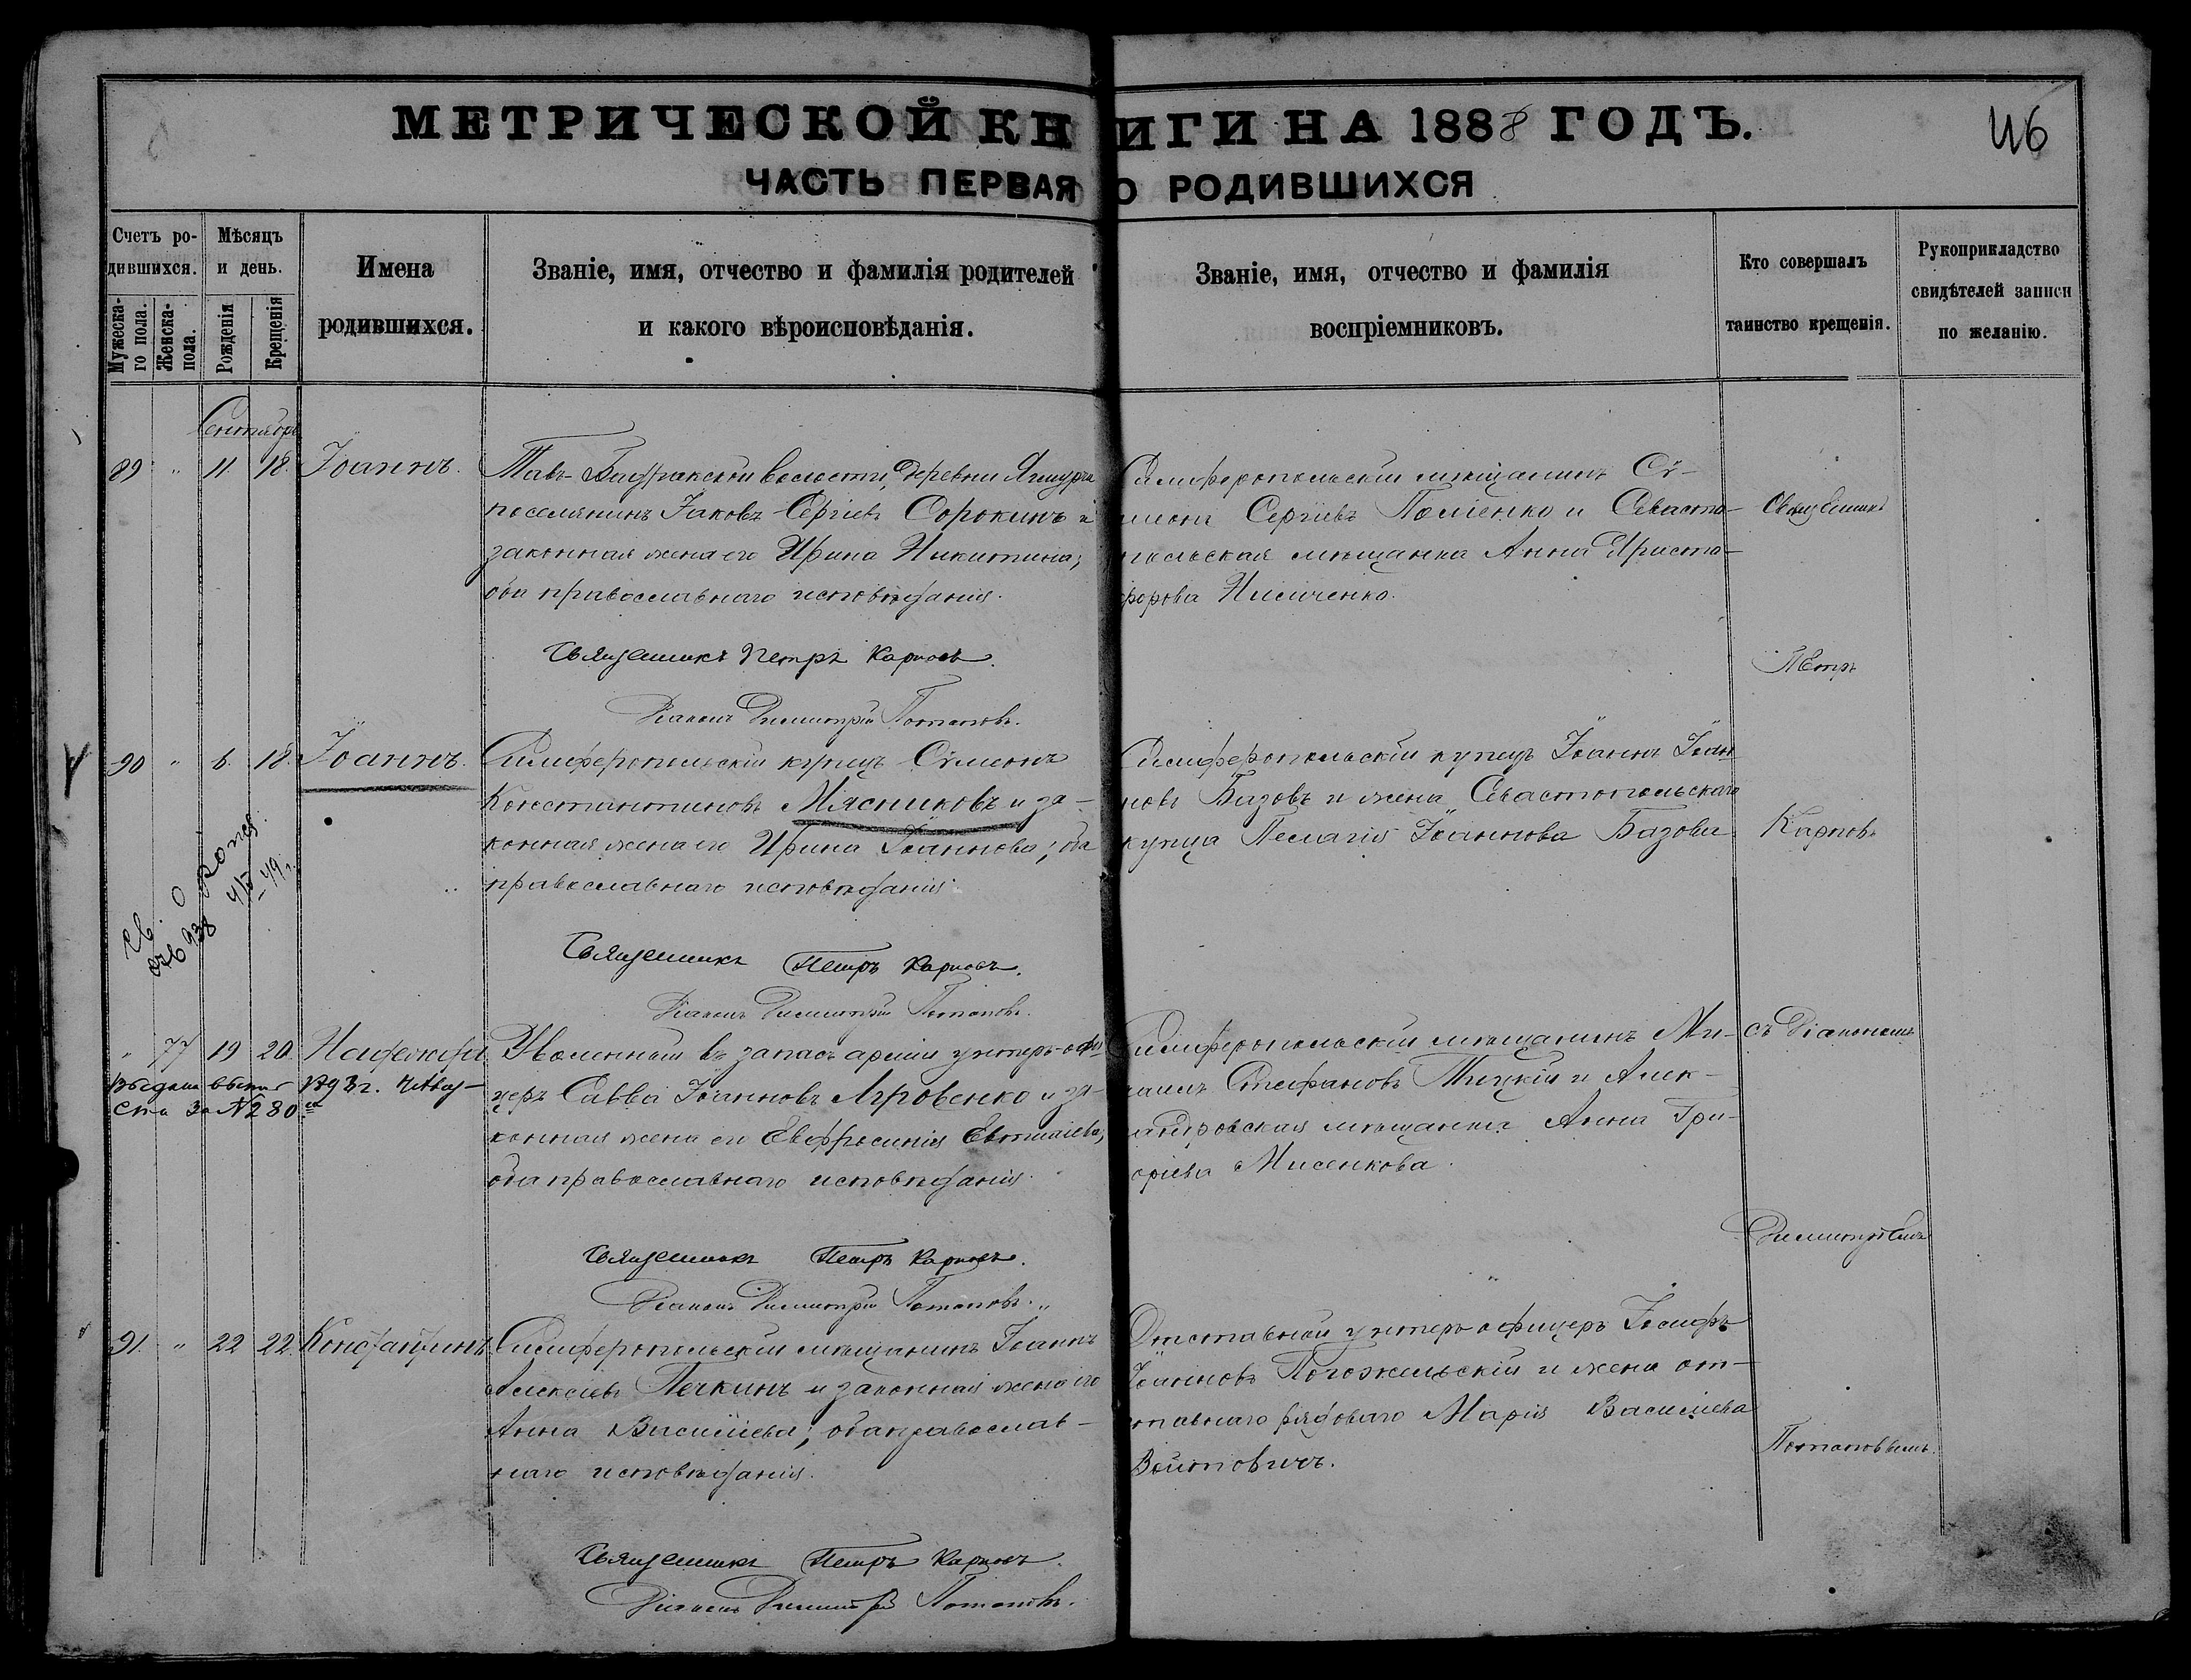 МЕТРИЧЕСКОЙ КНИГИ НА 1888 ГОДЪ.
46
ЧАСТЬ ПЕРВАЯ О РОДИВШИХСЯ
Счетъ родившихся.
Мужеска-го пола.
Женска- пола.
Мѣсяцъ и день.
Рожденія
Крещенія
Имена родившихся.
Званіе, имя, отчество и фамилія родителей
и какого вѣроисповѣданія.
Званіе, имя, отчество и фамилія
воспріемниковъ.
Кто совершалъ
таинство крещенія.
Рукоприкладство
свидѣтелей записи
по желанію.
Сентябрь
89 " 11. 18. Іоаннъ.
волости, деревни
поселянинъ Іаковъ Сергіевъ Сорокинъ и
законная жена его Ирина Никитина;
оба православнаго исповѣданія.
Священникъ Петръ Карповъ.
Діаконъ Димитрій Потаповъ.
Симферопольскій мѣщанинъ Сѵ-
меонъ Сергіевъ и Севасто-
польская мѣщанка Анна Христо-
форова
Священникъ
Петръ
90 " 6. 18. Іоаннъ.
Симферопольскій купецъ Сѵмеонъ
Константиновъ Мясниковъ и за-
конная жена его Ирина Іоаннова; оба
православнаго исповѣданія.
Священникъ Петръ Карповъ.
Діаконъ Димитрій Потаповъ.
Симферопольскій купецъ Іоаннъ Іоан-
новъ Базовъ и жена Севастопольскаго
купца Пелагія Іоаннова Базова
Карповъ
св. о
938
" 77 19 20.
Выдана выпис 1893 г. 4 Авгу-
ста за № 280
Уволенный въ запасъ арміи унтеръ-офи-
церъ Савва Іоанновъ Агровенко и за-
конная жена его Евфросинія
оба православнаго исповѣданія.
Священникъ Петръ Карповъ.
Діаконъ Димитрій Потаповъ.
Симферопольскій мѣщанинъ Ми-
хаилъ Стефановъ и Алек-
сандровская мѣщанка Анна Гри-
горіева Мисенкова.
съ Діакономъ
Димитріемъ
91. " 22 22. Константинъ
Симферопольскій мѣщанинъ Іоаннъ
Алексіевъ Печкинъ и законная жена его
Анна Василіева; оба православ-
наго исповѣданія.
Священникъ Петръ Карповъ.
Діаконъ Димитрій Потаповъ.
Отставной унтеръ офицеръ Іосифъ
Іоанновъ Погожельскій и жена от-
ставнаго рядоваго Марія Василіева
Войтовичъ.
Потаповымъ.